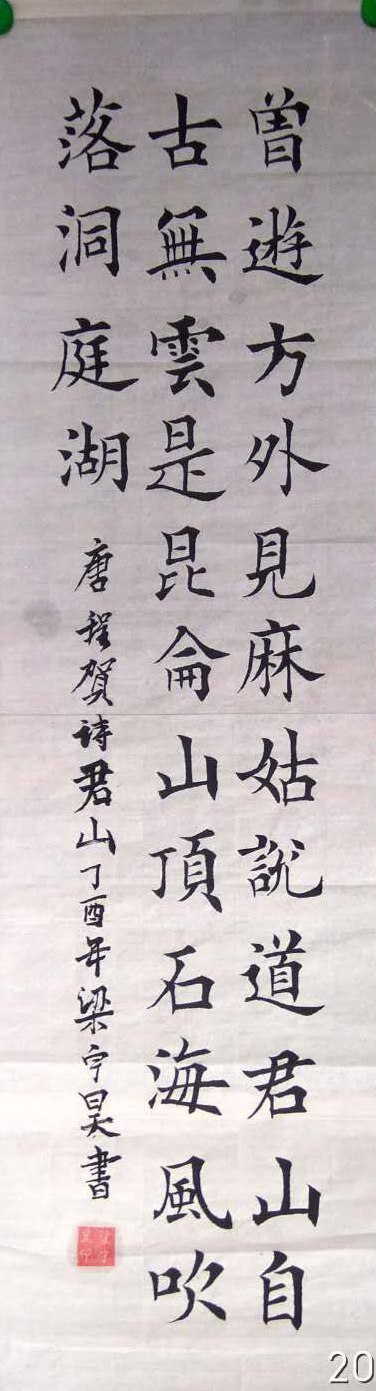 曽遊方外見麻姑說道君山自
古無雲是昆侖山頂石海風吹
落洞庭湖
唐程賀詩君山丁酉年梁宇昊書
20